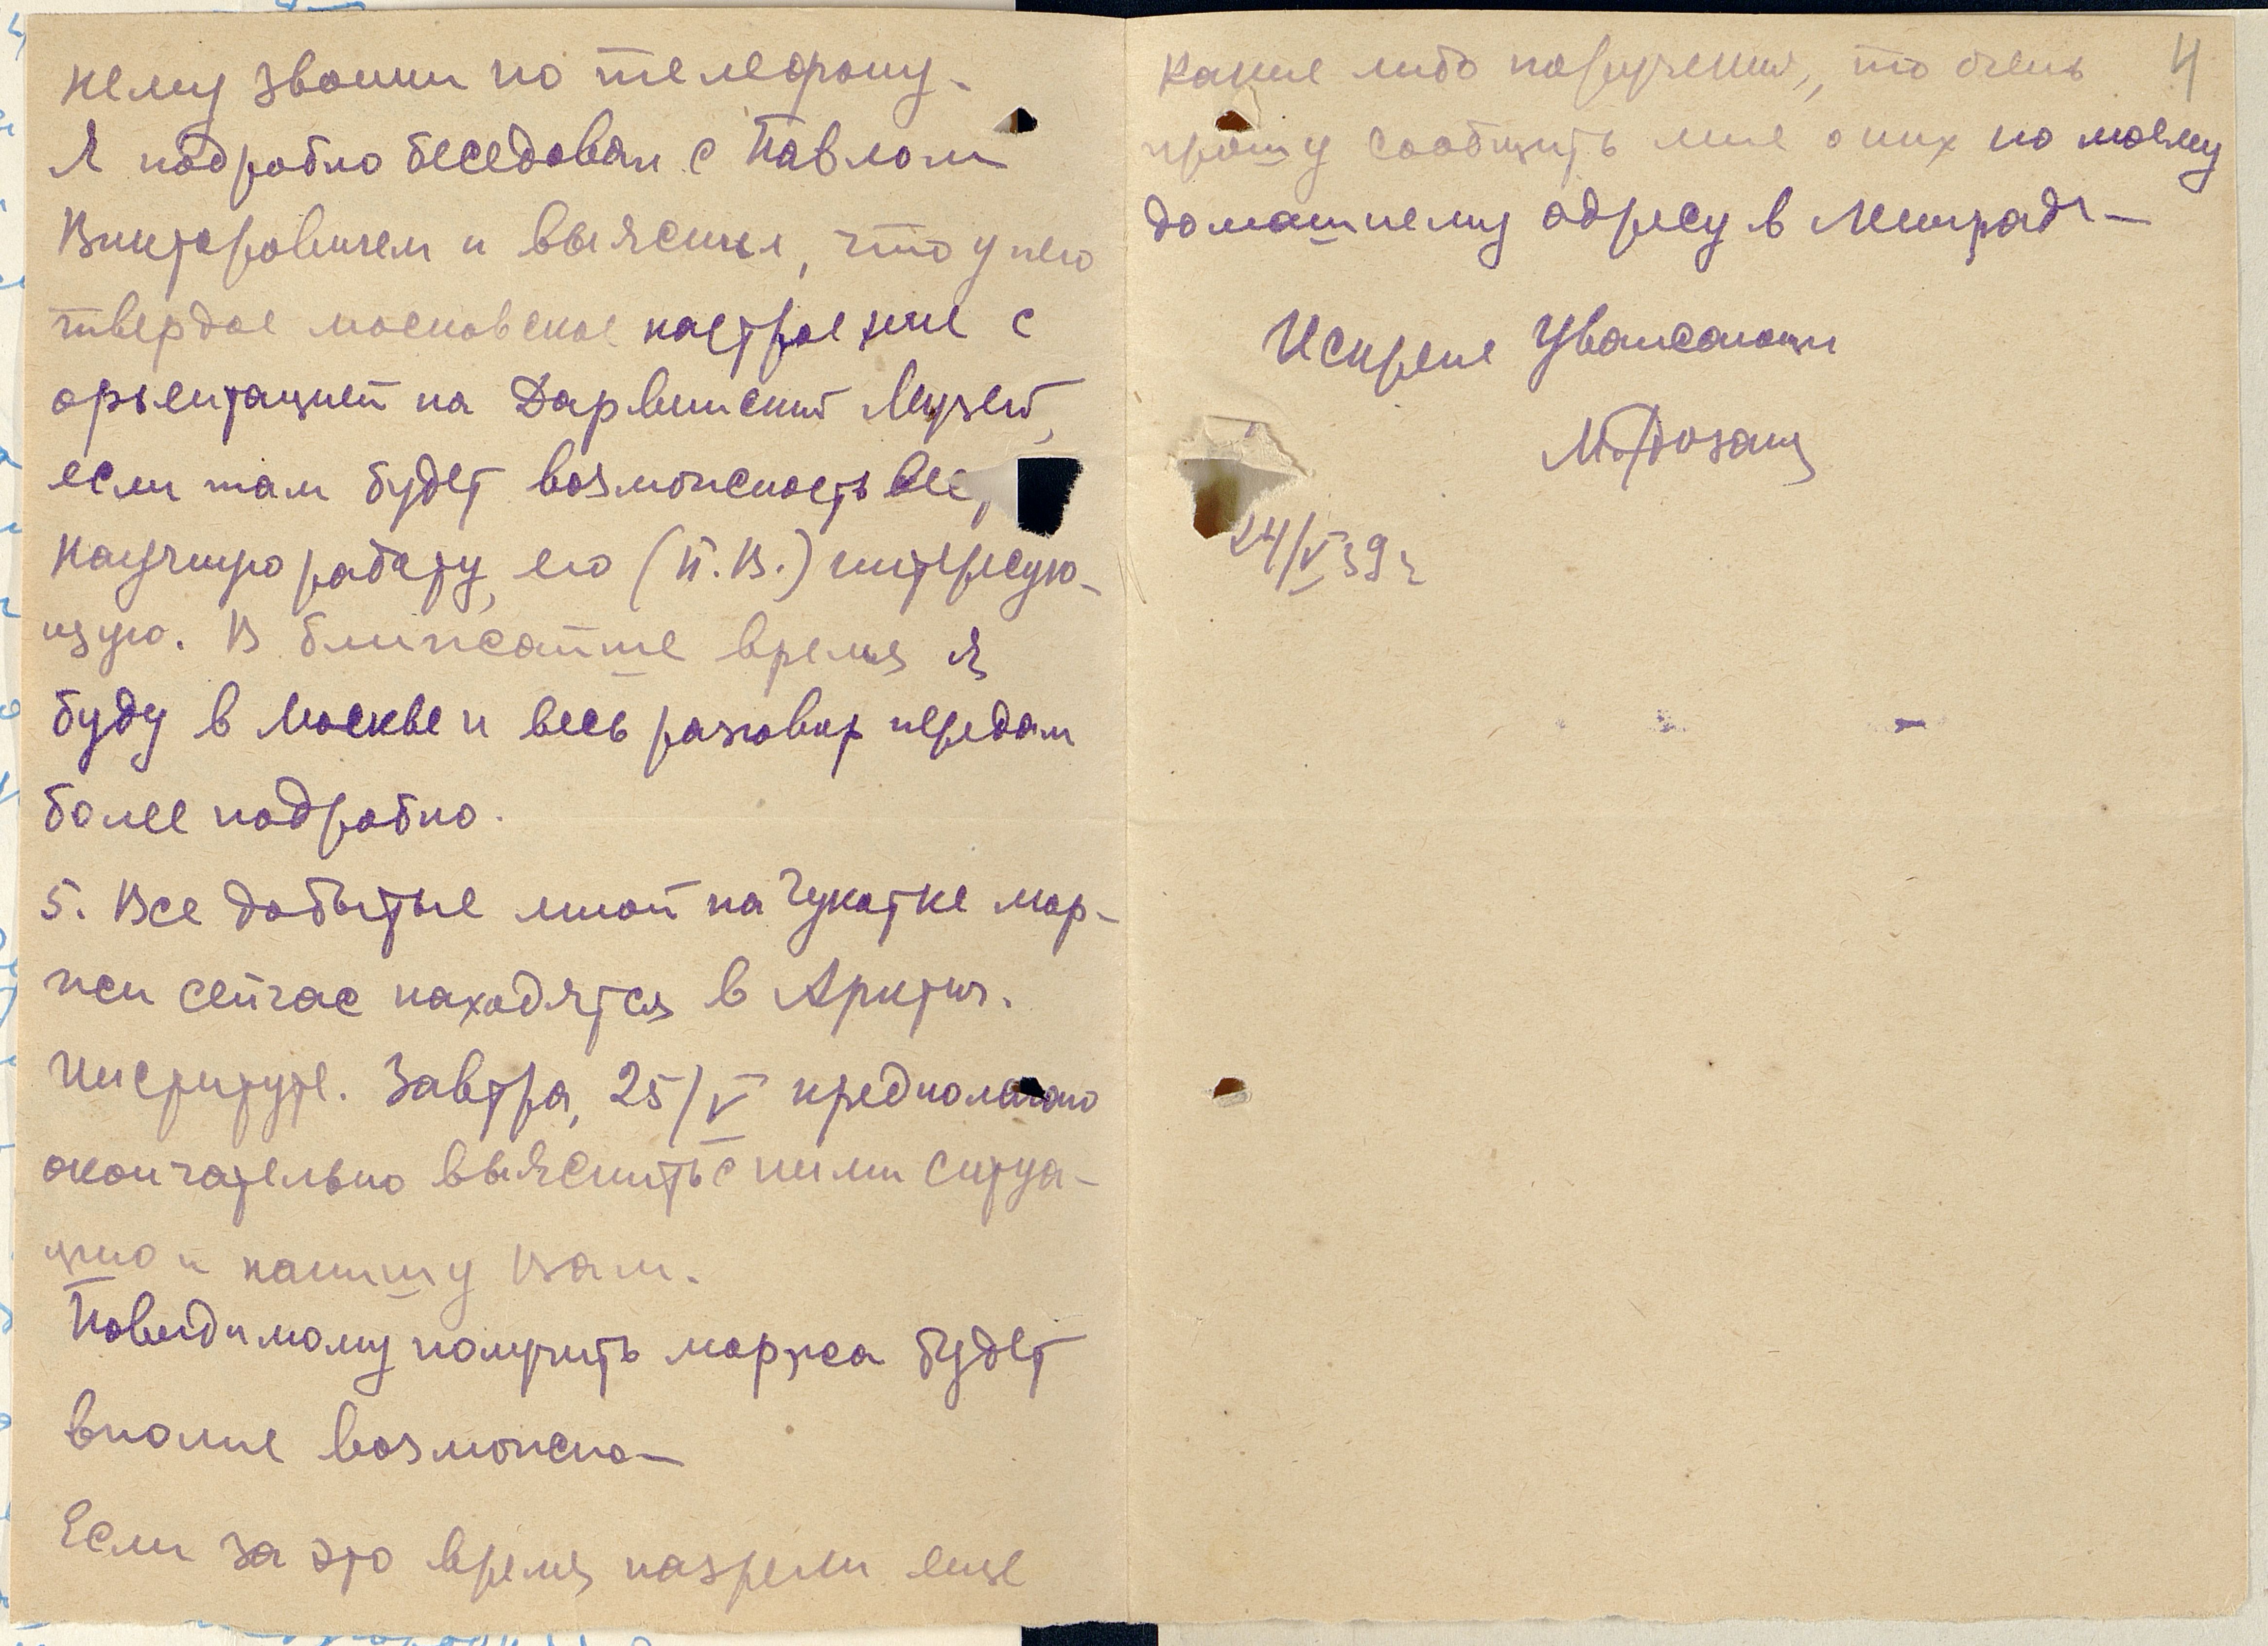 нему звонил по телефону.
Я подробно беседовал с Павлом
Викторовичем и выяснил, что у него
твердое московское настроение с
орьентацией на Дарвинский Музей,
если там будет возможность вес
научную работу, его (П.В.) интересую-
щую. В ближайшие время я
буду в Москве и весь разговор передам
более подробно.
5. Все добытые мной на Чукотке мор-
жи сейчас находятся в Арктич.
Институте. Завтра, 25/V предполагаю
окончательно выяснить с ними ситуа-
цию и напишу Вам.
Повидимому получить моржа будет
вполне возможно
Если за это время назрели еще
4
какие либо поручения, то очень
прошу сообщить мне о них по моему
домашнему адресу в Ленинград
Искрене Уважающи
24/V 39 г